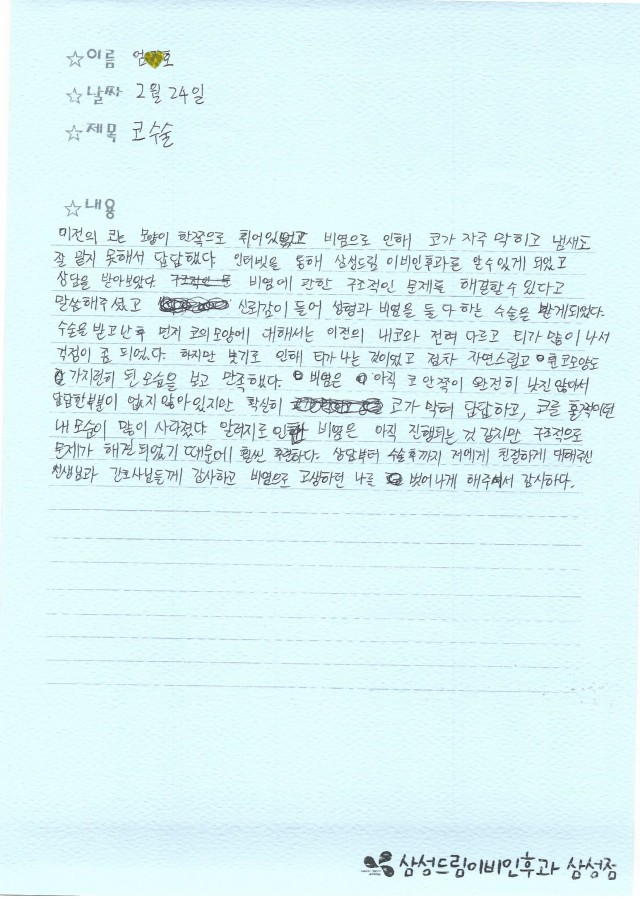 ☆이름 엄 호
☆날짜 2월 24일
☆제목 코수술
☆내용
이전의 코는 모양이 한쪽으로 휘어있었고 비염으로 인해 코가 자주 막히고 냄새도
잘 맡지 못해서 답답했다. 인터넷을 통해 삼성드림 이비인후과를 알수있게 되었고
상담을 받아보았다. 비염에 관한 구조적인 문제를 해결할수있다고
말씀해주셨고 신뢰감이 들어 성형과 비염을 둘 다 하는 수술을 받게되었다.
수술을 받고난후 먼저 코의모양에 대해서는 이전의 내코와 전혀 다르고 티가 많이 나서
걱정이 좀 되었다. 하지만 붓기로 인해 티가 나는 것이었고 점차 자연스럽고 코모양도
가지런히 된 모습을 보고 만족했다. 비염은 아직 코 안쪽이 완전히 낫진 않아서
답답한부분이 없지 않아있지만 확실히 코가 막혀 답답하고, 코를 훌쩍이던
내 모습이 많이 사라졌다. 알러지로 인한 비염은 아직 진행되는 것 같지만 구조적으로
문제가 해결되었기 때문에 훨씬 후련하다. 상담부터 수술후까지 저에게 친절하게 대해주신
선생님과 간호사님들께 감사하고 비염으로 고생하던 나를 벗어나게 해주셔서 감사하다.
삼성드림이비인후과 삼성점